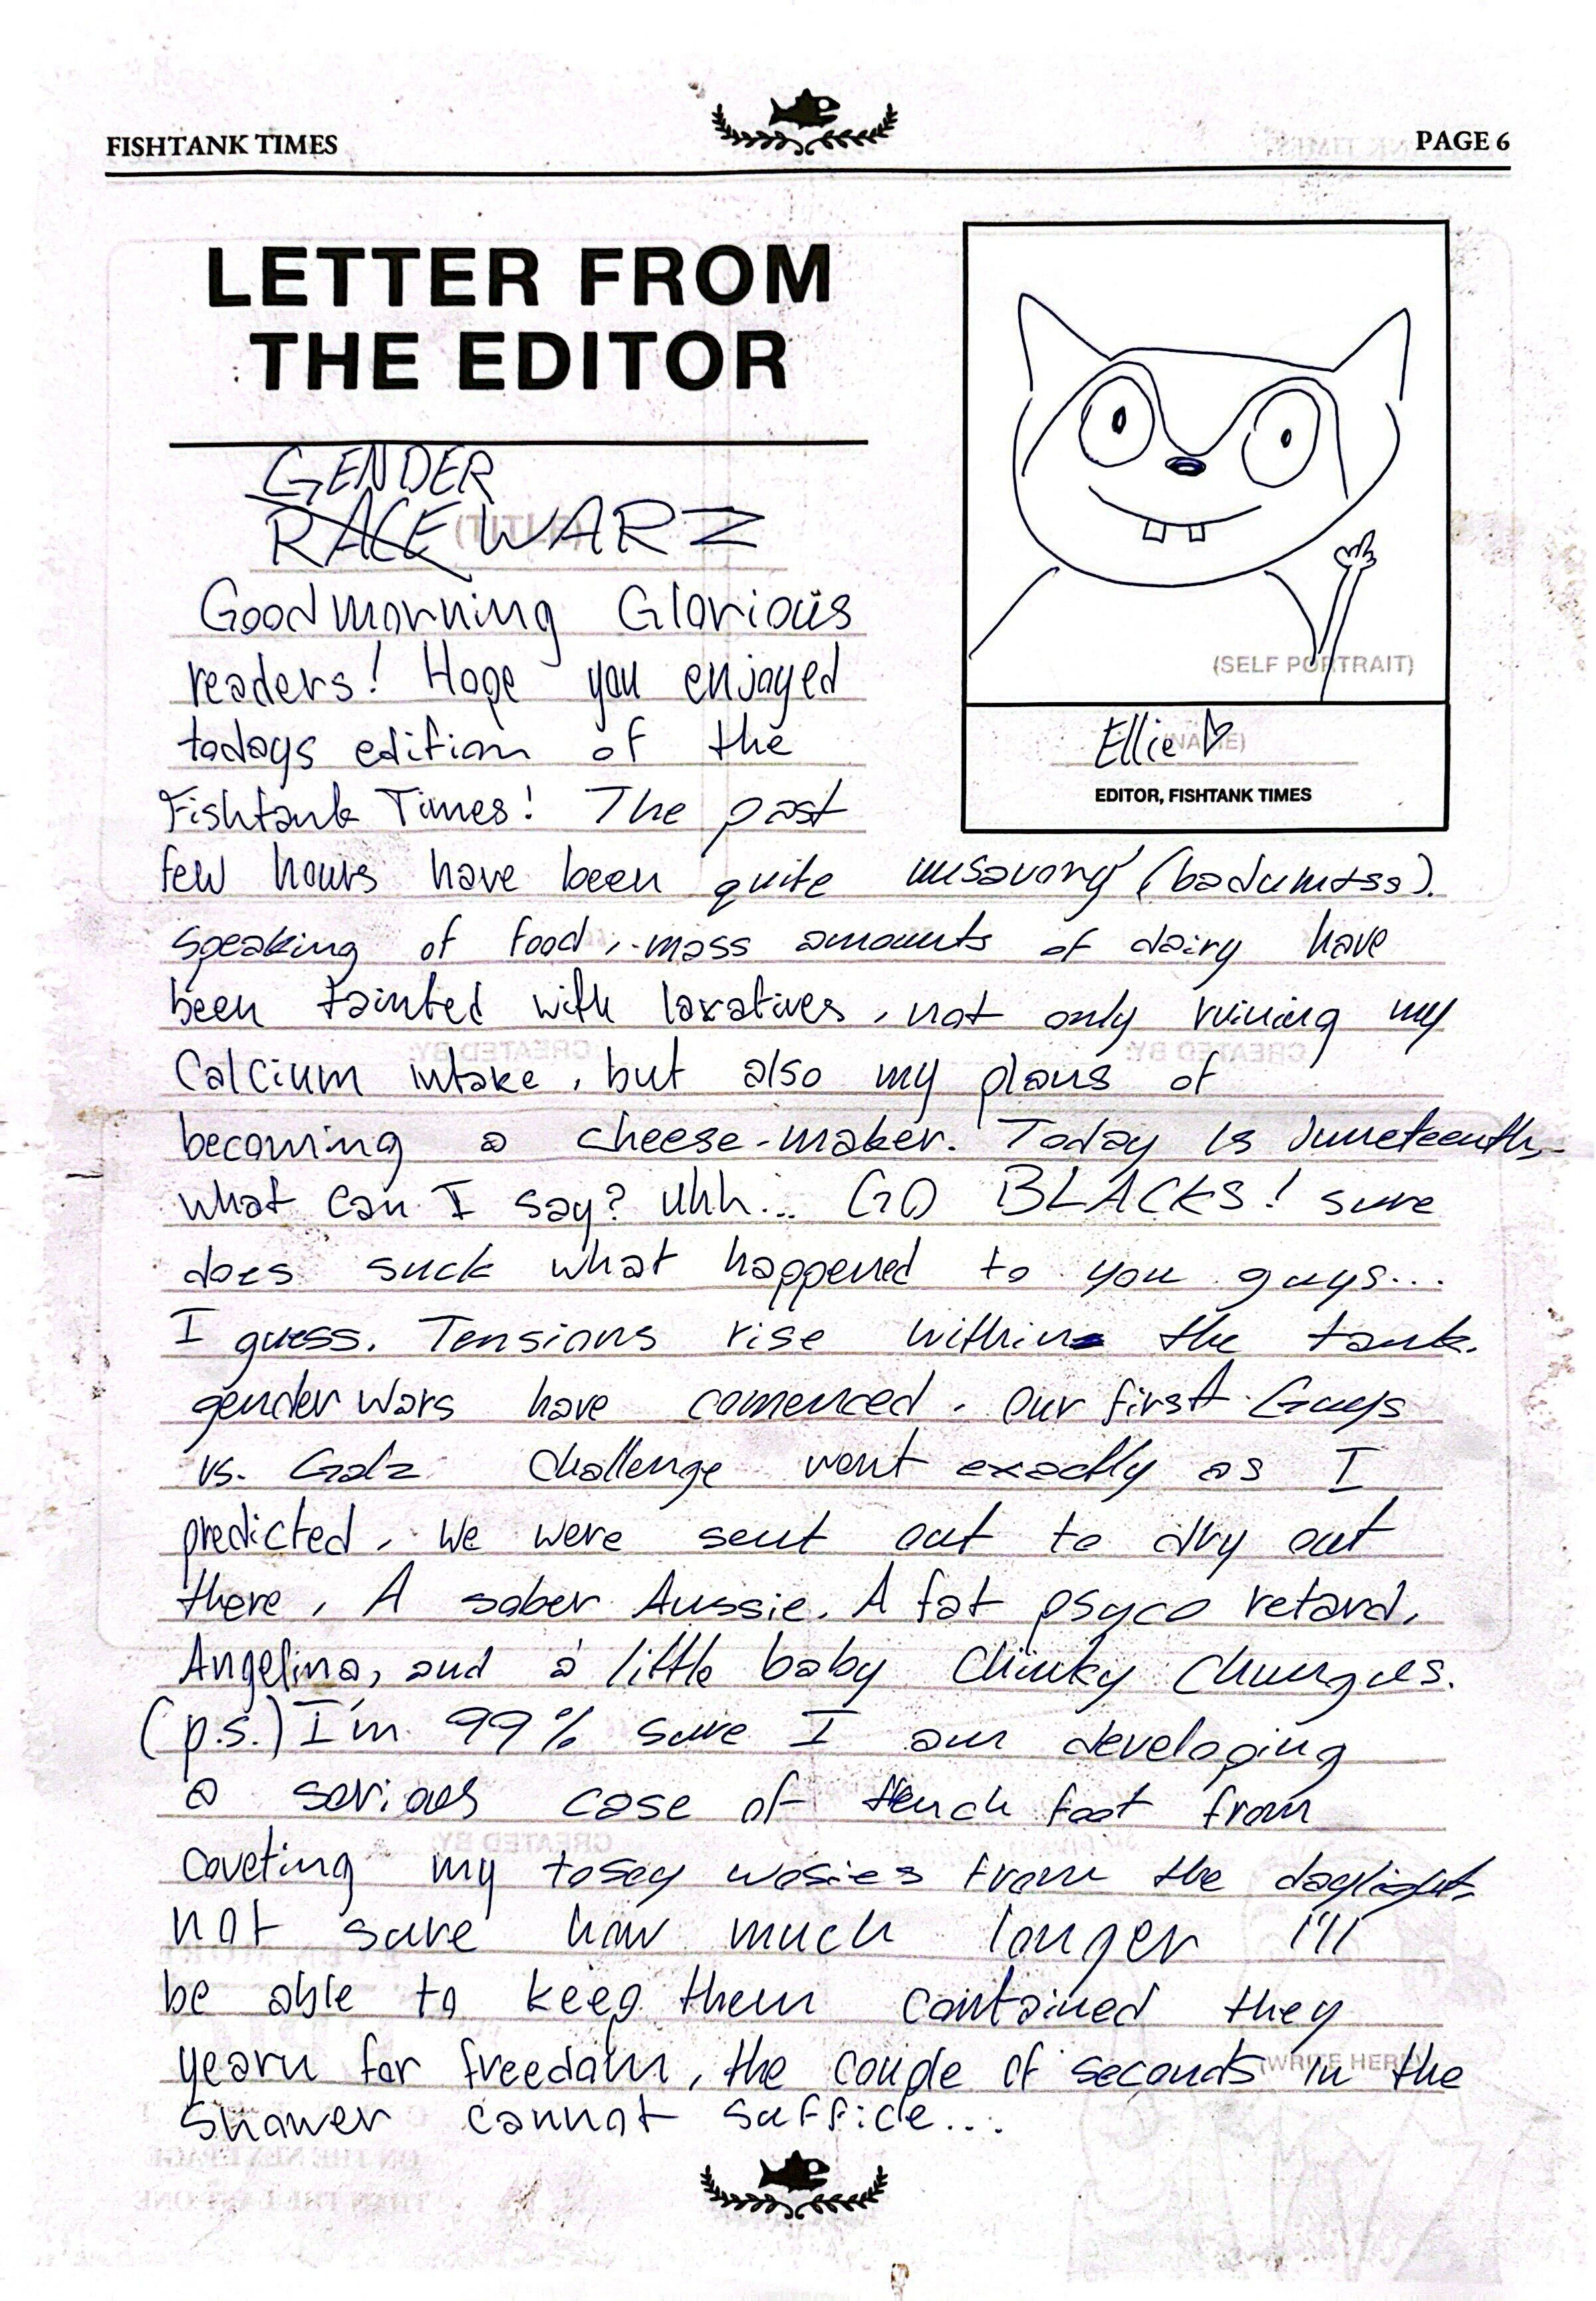 FISHTANK TIMES
PAGE 6
LETTER FROM
THE EDITOR
GENDER
RACE WARZ
Goodmorning Glorious
readers! Hope you enjoyed
todays edition of the
Fishtank Times! The past
few hours have been quite unsavory (badumtss).
speaking of food, mass amounts of dairy have
been tainted with laxatives, not only ruining my
Calcium intake, but also my plans of
becoming a cheese-maker. Today is Juneteenth,
what can I say? Uhh... GO BLACKS! sure
does suck what happened to you guys...
I guess. Tensions rise within the tank.
gender wars have comenced. Our first Guys
vs. Galz Challenge went exactly as I
predicted, we were sent out to dry out
there, A sober Aussie, A fat psyco retard,
Angelina, and a little baby Chinky Chungus.
(p.s.) I'm 99% sure I am developing
a serious case of trench foot from
coveting my tosey wosies from the daylight.
not sure how much longer I'll
be able to keep them contained they
yearn for freedom, the couple of seconds in the
shower cannot suffice...
(SELF PORTRAIT)
Ellie
(NAME)
EDITOR, FISHTANK TIMES